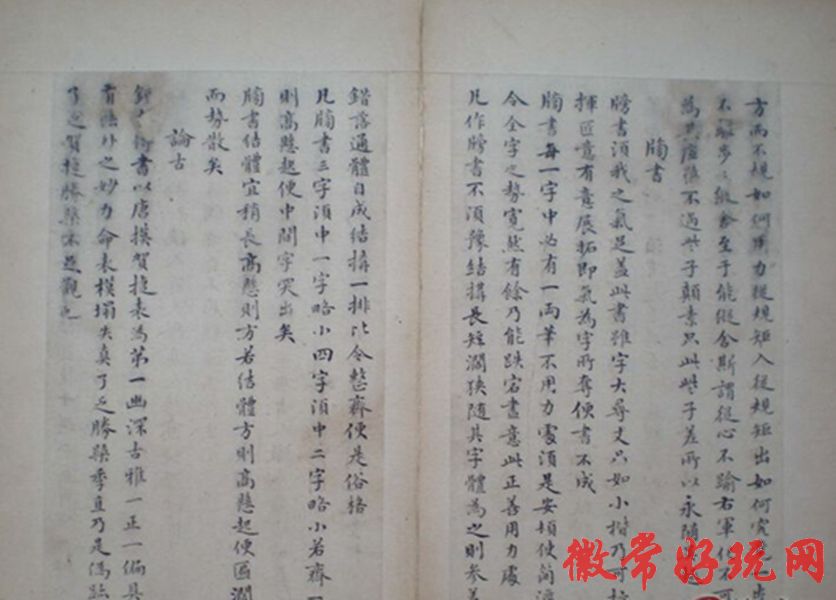 方而不規如何用力從規矩入從規矩出如何究竟一步
不離步々縱舍至于能縱舍斯謂從心不踰右軍化不可
為只不過些子顛素只此些子差所以永
牓書
牓書須我之氣足蓋此書雖字大尋丈只如小楷乃可指
揮匠意有意展拓即氣為字所奪便書不成
牓書每一字中必有一兩筆不用力處須是安頓使簡澹
令全字之勢寬然有餘乃能跌宕盡意此正善用力處
凡作牓書不須豫結搆長短濶狹隨其字體為之則參差
錯落通體自成結搆一排比令整齊便是俗格
凡牓書三字須中一字略小四字須中二字略小若齊一
則高懸起便中間字突出矣
牓書結體宜稍長高懸則方若結體方則高懸起便匾濶
而勢散矣
論古
書以唐摸賀捷表為第一幽深古雅一正一偏具
有法外之妙力命表模搨失真了乏勝槩季直乃是
了乏賀捷勝槩不足觀也
徽常好玩网